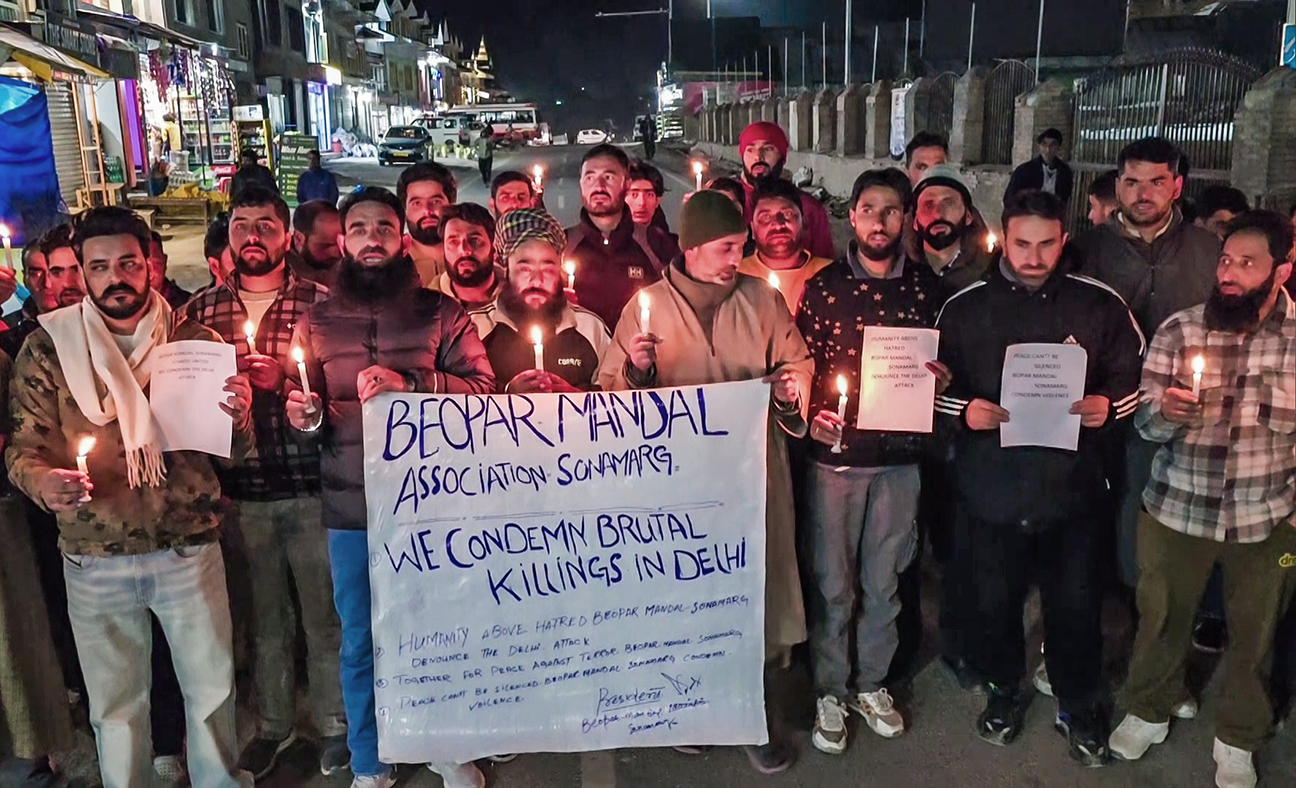 BEOPAR MANDAL
ASSOCIATION SONAMARG
WE CONDEMN BRUTAL
KILLINGS IN DELHI
HUMANITY ABOVE HATRED BEOPAR MANDAL SONAMARG
DENOUNCE THE DELHI ATTACK
TOGETHER FOR PEACE AGAINST TERROR BEOPAR MANDAL SONAMARG
PEACE CAN'T BE SILENCED BEOPAR MANDAL SONAMARG CONDEMN
VOILENCE
President
Beopar Mandal
Sonamarg
BEOPAR MANDAL SONAMARG
WE CONDEMN THE DELHI
ATTACK
HUMANITY ABOVE
HATRED
BEOPAR MANDAL
SONAMARG
DENOUNCE THE DELHI
ATTACK
PEACE CAN'T BE
SILENCED
BEOPAR MANDAL
SONAMARG
CONDEMN VIOLENCE
HH